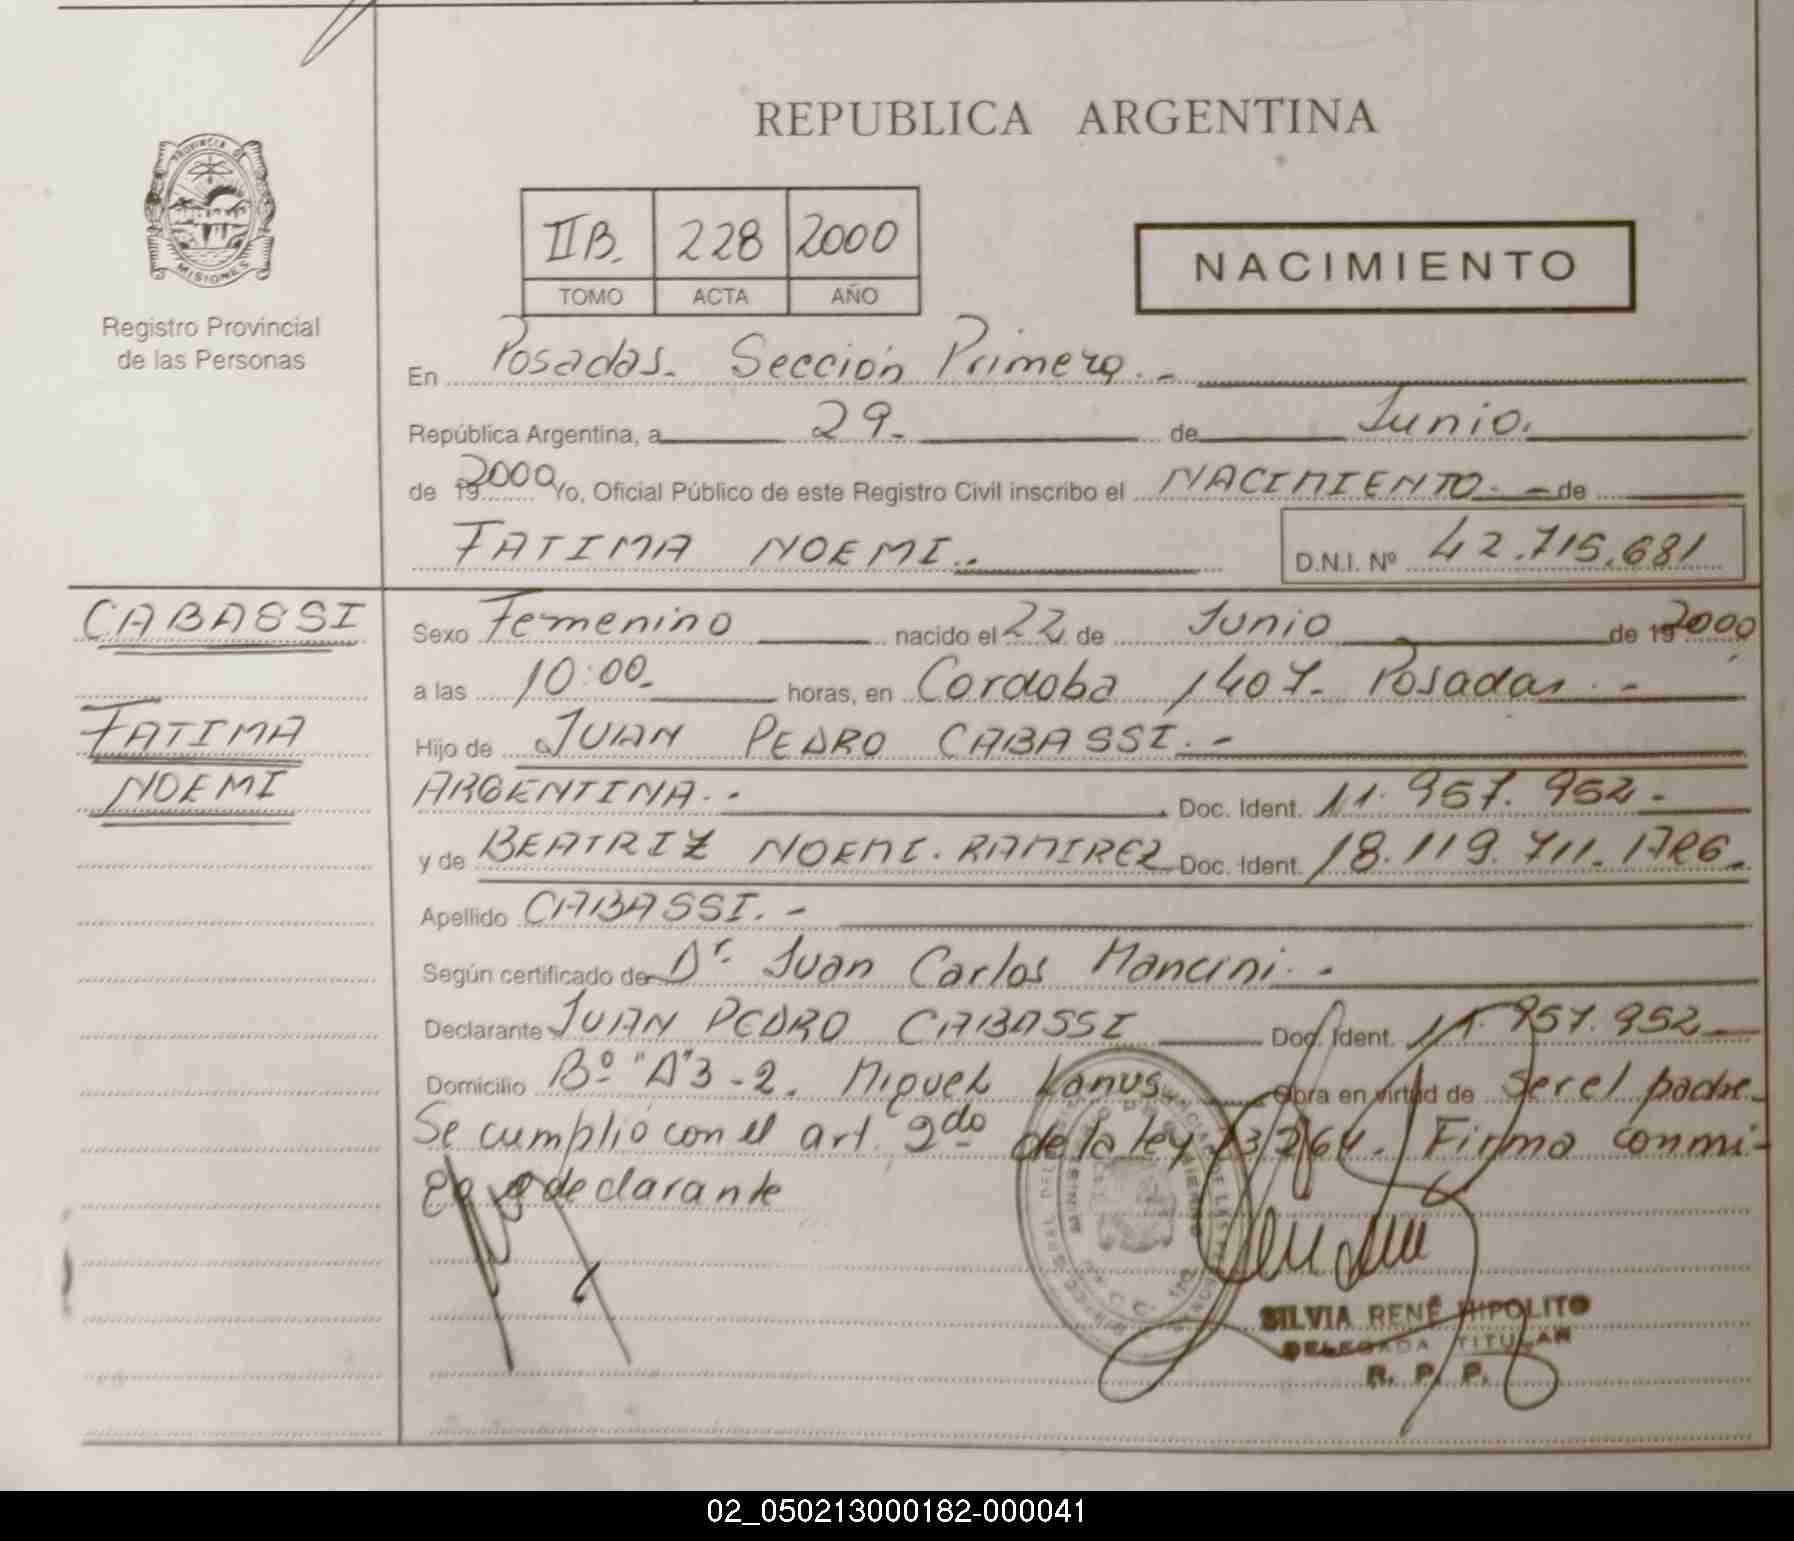 REPUBLICA ARGENTINA
PROVINCIA DE
MISIONES
Registro Provincial
de las Personas
IIB. 228 2000
TOMO ACTA AÑO
NACIMIENTO
En Posadas. Sección Primera.-
República Argentina, a 29. de Junio.
de 19 2000 Yo, Oficial Público de este Registro Civil inscribo el NACIMIENTO.- de
FATIMA NOEMI..
D.N.I. Nº 42.715.681
CABASSI
FATIMA
NOEMI
Sexo Femenino nacido el 22 de Junio de 19 2000
a las 10:00. horas, en Cordoba 1407. Posadas.-
Hijo de JUAN PEDRO CABASSI.-
ARGENTINA.- Doc. Ident. 11.957.952.-
y de BEATRIZ NOEMI. RAMIREZ Doc. Ident. 18.119.711. ARG.
Apellido CABASSI.-
Según certificado de Dr. Juan Carlos Mancini.-
Declarante JUAN PEDRO CABASSI Doc. Ident. 11.957.952
Domicilio Bº "A" 3-2. Miguel Lanus. Obra en virtud de Ser el padre.
Se cumplió con el art. 2do de la ley 23264. Firma conmi-
go declarante
SILVIA RENÉ HIPOLITO
DELEGADA TITULAR
R. P. P.
02_050213000182-000041